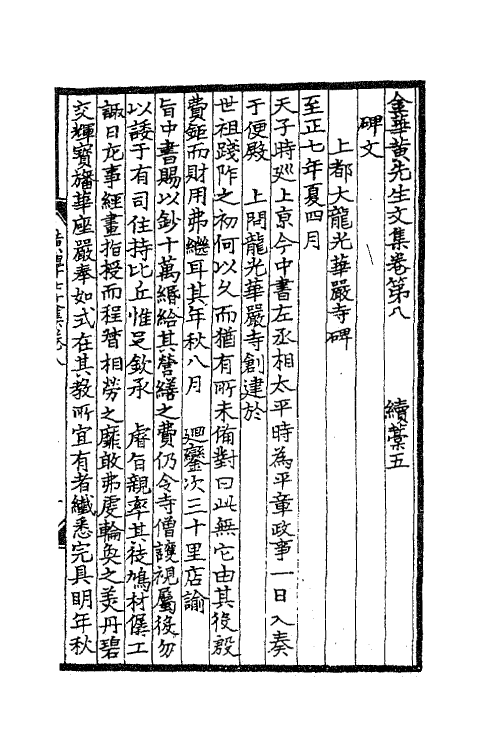 金華黃先生文集卷第八　　續藁五
碑文
上都大龍光華嚴寺碑
至正七年夏四月
天子時廵上京今中書左丞相太平時為平章政事一日入奏
于便殿　上問龍光華嚴寺創建於
世祖踐阼之初何以久而猶有所未備對曰此無它由其役殷
費鉅而財用弗繼耳其年秋八月　迴鑾次三十里店諭
旨中書賜以鈔十萬緡給其營繕之費仍令寺僧護視屬役勿
以諉于有司住持比丘惟足欽承　睿旨親率其徒鳩材僝工
諏日庀事經畫指授而程督相勞之靡敢弗虔輪奐之美丹碧
交輝寳旛華座嚴奉如式在其教所宜有者纎悉完具明年秋